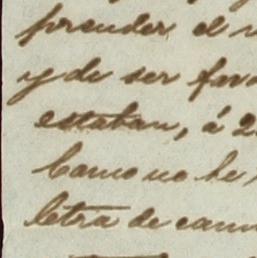 prender el
y de ser fav
estaban, á 2
Como no he
letra de cam